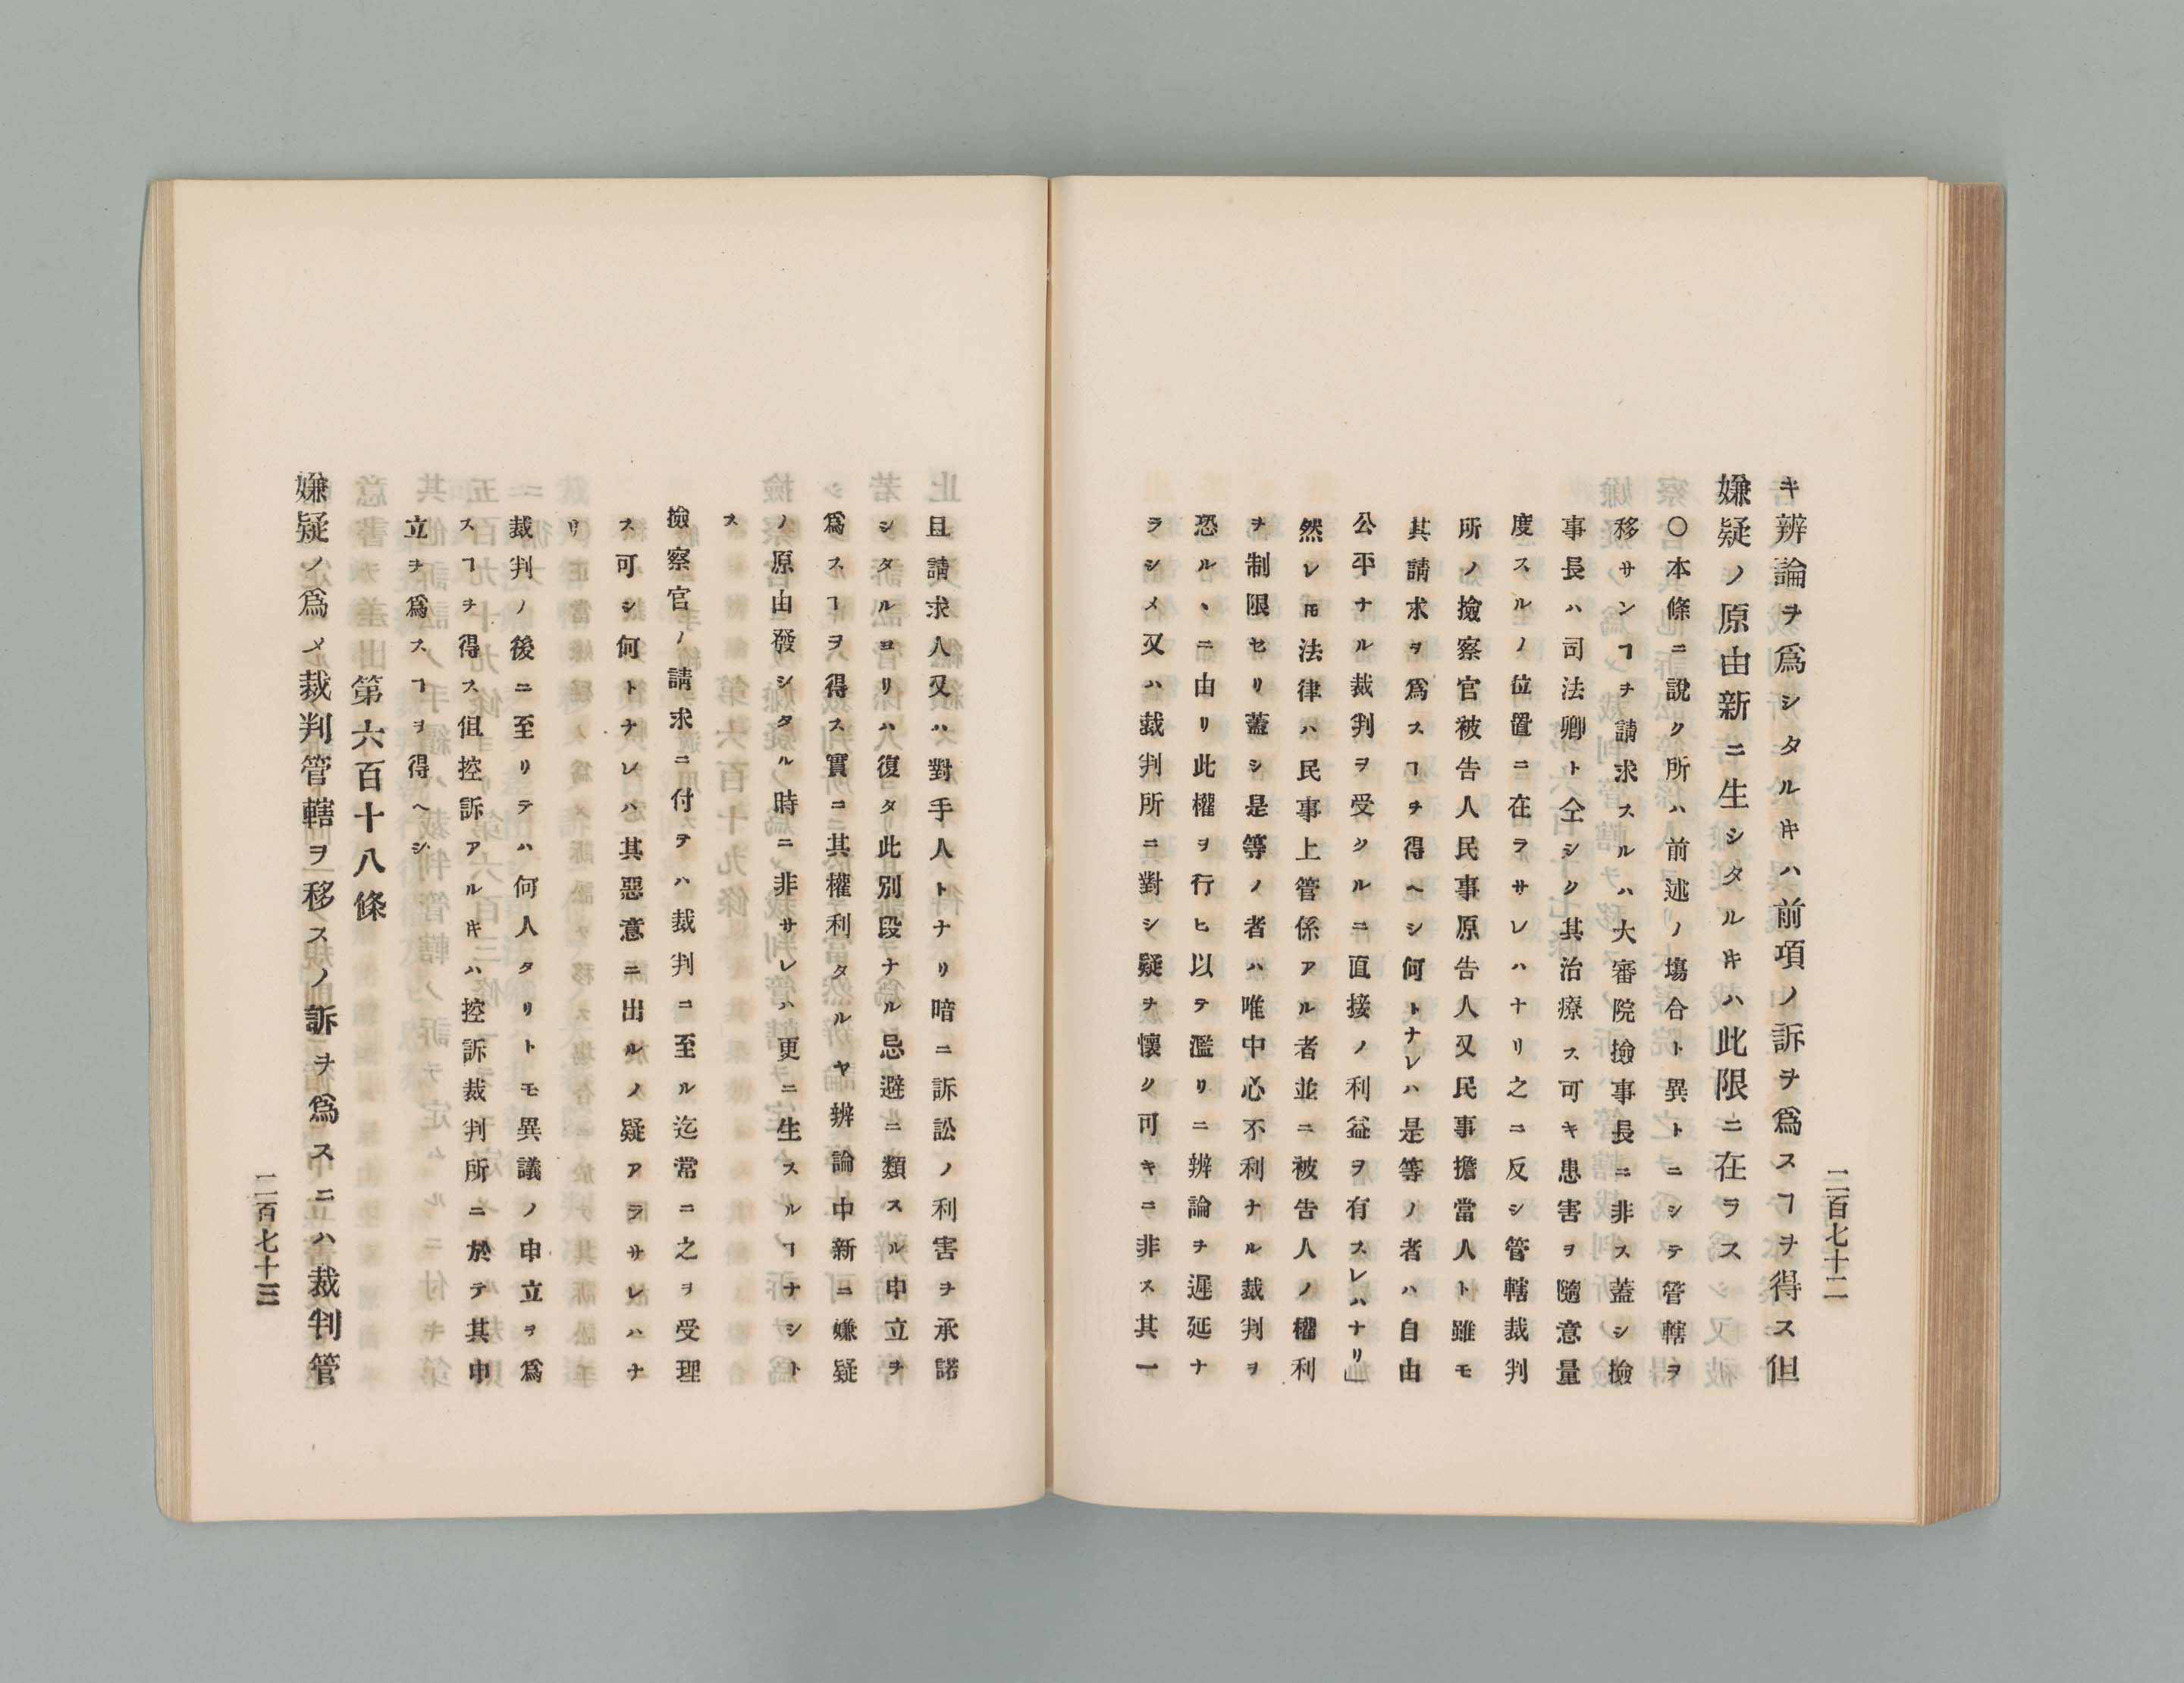 二百七十二
キ辨論ヲ爲シタルキハ前項ノ訴ヲ爲スヿヲ得ス但
嫌疑ノ原由新ニ生シタルキハ此限ニ在ラス
〇本條ニ說ク所ハ前述ノ塲合ト異トニシテ管轄ヲ
移サンヿヲ請求スルハ大審院撿事長ニ非ス蓋シ撿
事長ハ司法卿ト仝シク其治療ス可キ患害ヲ隨意量
度スルノ位置ニ在ラサレハナリ之ニ反シ管轄裁判
所ノ撿察官被告人民事原告人又民事擔當人ト雖モ
其請求ヲ爲スヿヲ得ヘシ何トナレハ是等ノ者ハ自由
公平ナル裁判ヲ受クルニ直接ノ利益ヲ有スレハナリ」
然レ𪜈法律ハ民事上管係アル者並ニ被告人ノ權利
ヲ制限セリ蓋シ是等ノ者ハ唯中心不利ナル裁判ヲ
恐ルヽニ由リ此權ヲ行ヒ以テ濫リニ辨論ヲ遲延ナ
ラシメ又ハ裁判所ニ對シ疑ヲ懷ク可キニ非ス其一
且請求人又ハ對手人トナリ暗ニ訴訟ノ利害ヲ承諾
シタルヨリハ復タ此別段ナル忌避ニ類スル申立ヲ
爲スヿヲ得ス實ニ其權利タルヤ辨論中新ニ嫌疑
ノ原由發シタル時ニ非サレハ更ニ生スルヿナシト
ス
撿察官ノ請求ニ付テハ裁判ニ至ル迄常ニ之ヲ受理
ス可シ何トナレハ其惡意ニ出ルノ疑アラサレハナ
リ
裁判ノ後ニ至リテハ何人タリトモ異議ノ申立ヲ爲
スヿヲ得ス但控訴アルキハ控訴裁判所ニ於テ其申
立ヲ爲スヿヲ得ヘシ
第六百十八條
嫌疑ノ爲メ裁判管轄ヲ移スノ訴ヲ爲スニハ裁判管
二百七十三